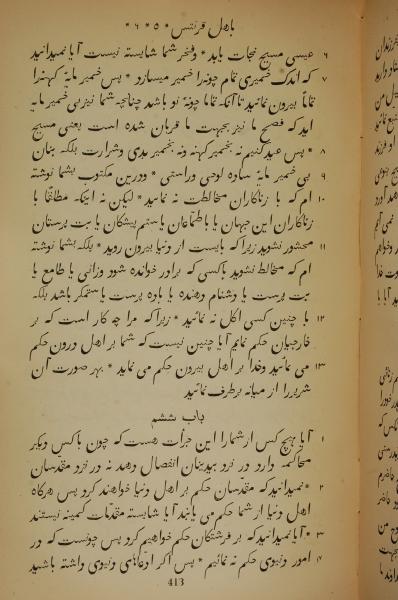 باهل قرنتس * ٥ * ٦ *
٦ عیسی مسیح نجات یابد * وفخر شما شایسته نیست آیا نمیدانید
٧ که اندک خمیری تمام چونه‌را خمیر میسازد * پس خمیر مایهٔ کهنه‌را
تماماً بیرون نمائید تا آنکه تماماً چونهٔ نو باشد چنانچه شما نیز بی خمیر مایه
اید که فصح ما نیز بجهت ما قربان شده است یعنی مسیح
٨ * پس عید کنیم نه بخمیر کهنه ونه بخمیر بدی وشرارت بلکه بنان
٩ بی خمیر مایهٔ ساده لوحی وراستی * ودرین مکتوب بشما نوشته
١٠ ام که با زناکاران مخالطت نه نمائید * لیکن نه اینکه مطلقاً با
زناکاران این جهان یا باطماعان یا ستم پیشگان یا بت پرستان
١١ محشور نشوید زیرا که بایست از دنیا بیرون روید * بلکه بشما نوشته
ام که مخالط نشوید باکسی که برادر خوانده شود وزانی یا طامع یا
بت پرست یا دشنام دهنده یا باده پرست یا ستمگر باشد بلکه
١٢ با چنین کسی اکل نه نمائید * زیرا که مرا چه کار است که بر
خارجیان حکم نمایم آیا چنین نیست که شما بر اهل درون حکم
١٣ می نمائید وخدا بر اهل بیرون حکم می نماید * بهر صورت آن
شریررا از میانه برطرف نمائید
باب ششم
١ آیا هیچ کس از شمارا این جرأت هست که چون باکس دیگر
محاکمه دارد در نزد بیدینان انفصال دهد نه در نزد مقدسان
٢ * نمیدانید که مقدسان حکم بر اهل دنیا خواهند کرد پس هرگاه
اهل دنیا از شما حکم می یابند آیا شایسته مقدمات کمینه نیستند
٣ * آیا نمیدانید که بر فرشتگان حکم خواهیم کرد پس چونست که در
۴ امور دنیوی حکم نه نمائیم * پس اگر ادعاهای دنیوی داشته باشید
413